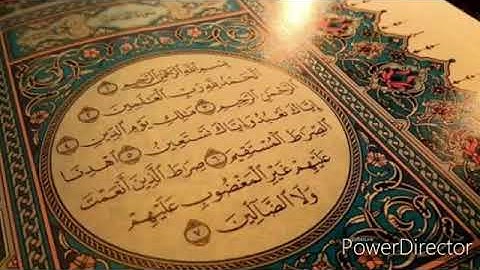 بِسْمِ اللَّهِ الرَّحْمَٰنِ الرَّحِيمِ ١
الْحَمْدُ لِلَّهِ رَبِّ الْعَالَمِينَ ٢
الرَّحْمَٰنِ الرَّحِيمِ ٣ مَالِكِ يَوْمِ الدِّينِ ٤
إِيَّاكَ نَعْبُدُ وَإِيَّاكَ نَسْتَعِينُ ٥ اهْدِنَا
الصِّرَاطَ الْمُسْتَقِيمَ ٦ صِرَاطَ الَّذِينَ أَنْعَمْتَ
عَلَيْهِمْ غَيْرِ الْمَغْضُوبِ عَلَيْهِمْ
وَلَا الضَّالِّينَ ٧
PowerDirector